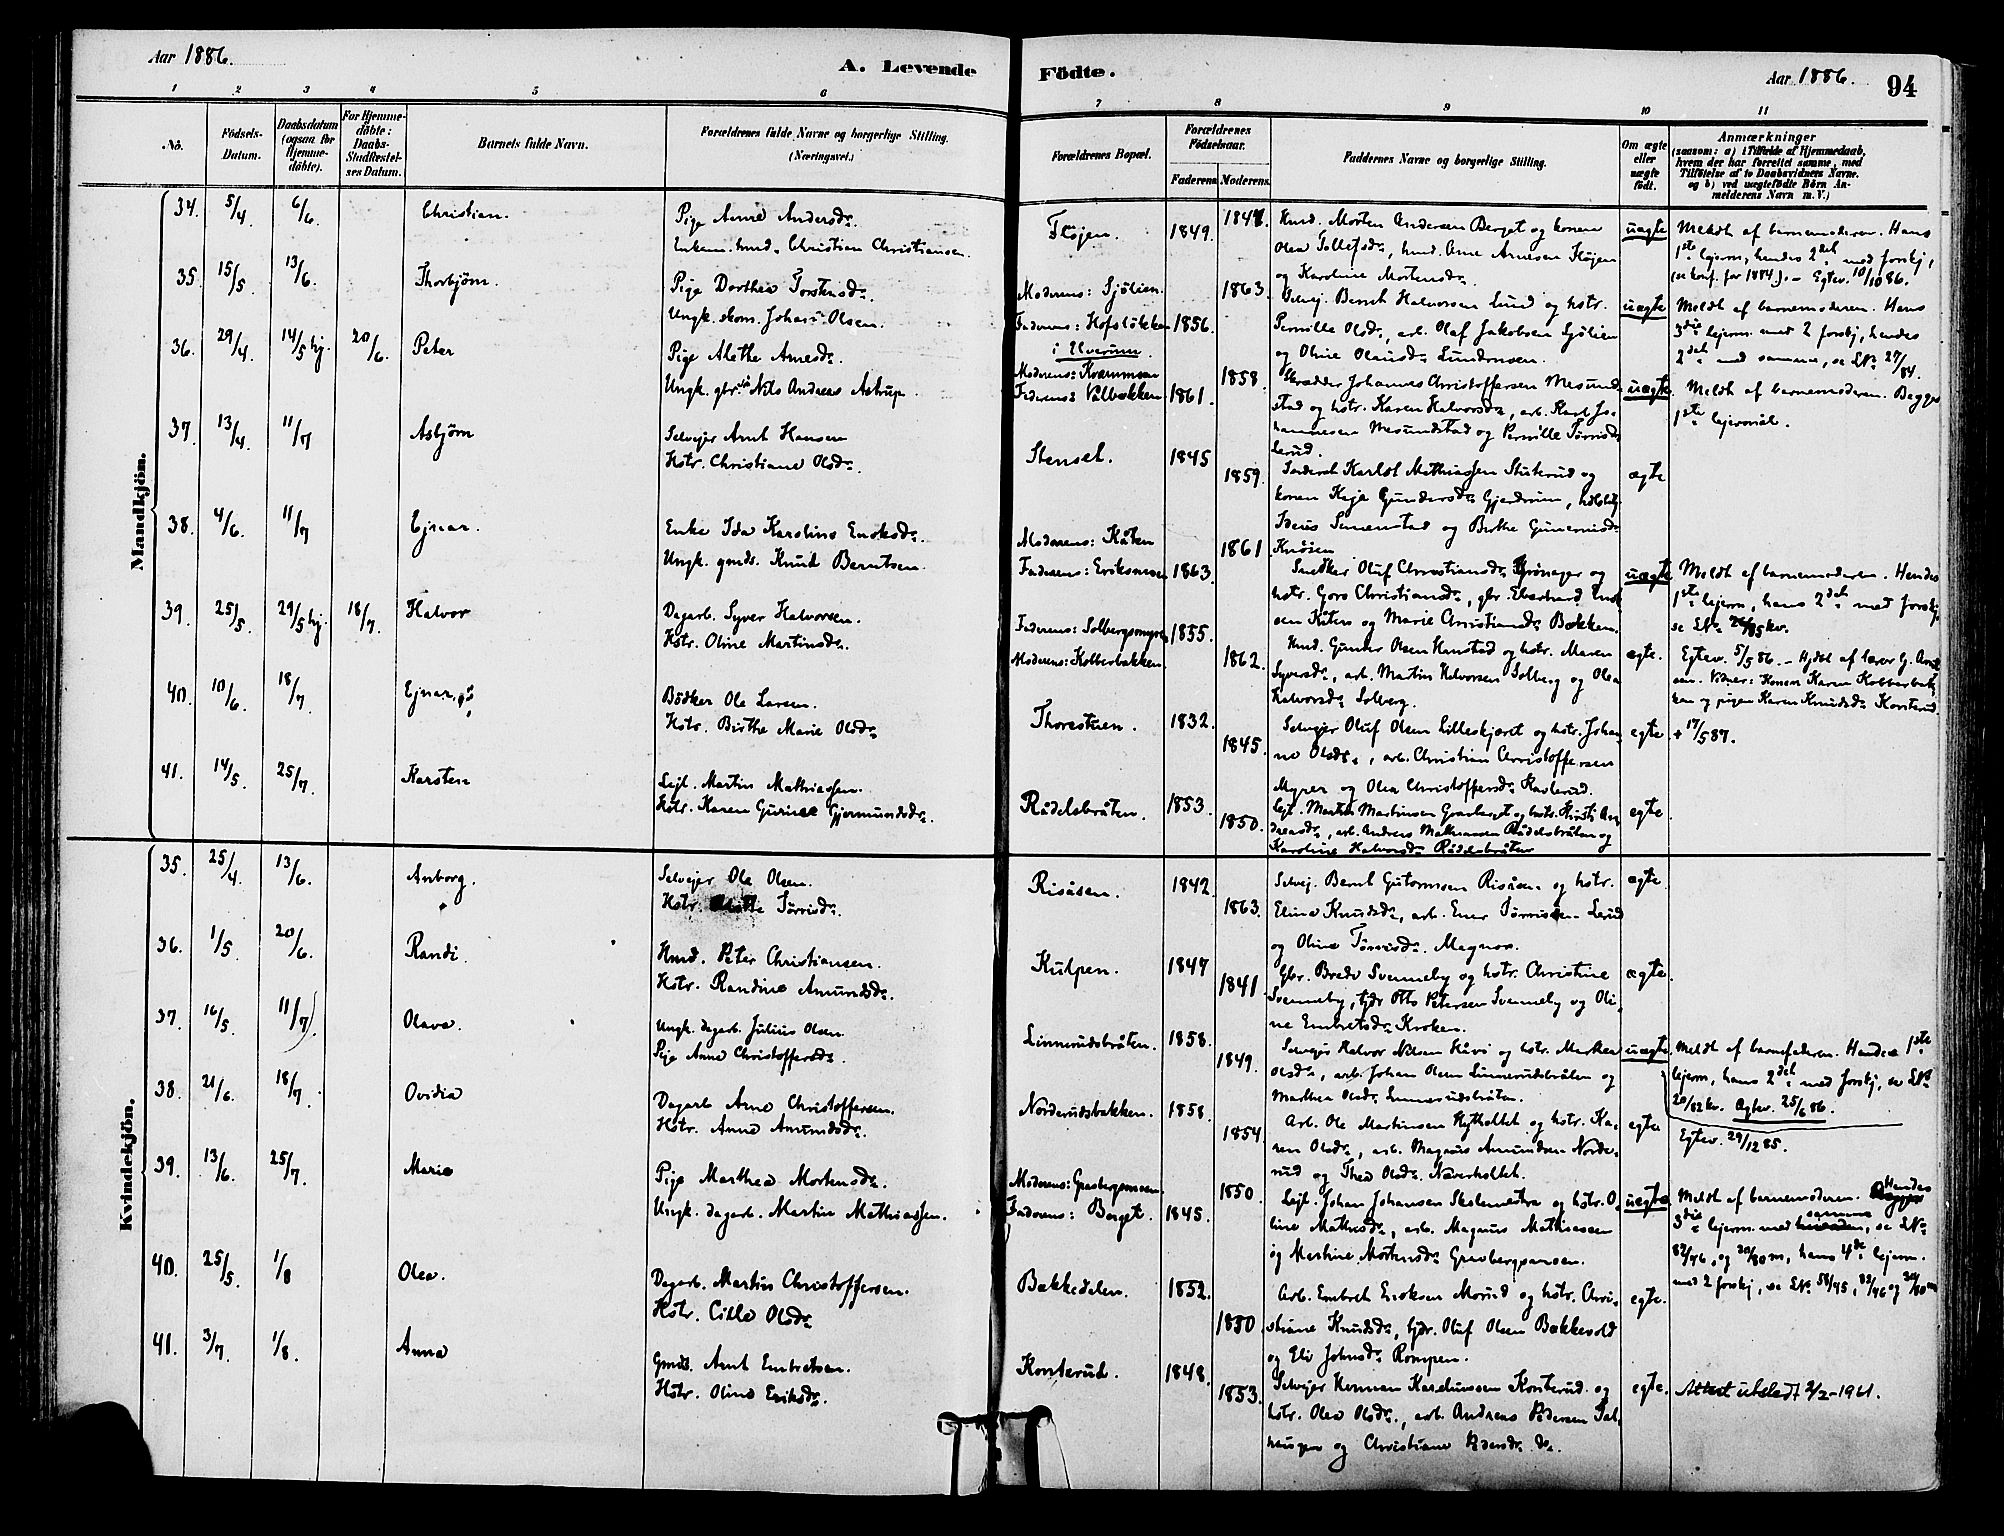 Aar 1886.
A. Levende Födte.
Aar 1886.
94
1 2 3 4 5 6 7 8 9 10 11
No.
Födsels-
Datum.
Daabsdatum
(ogsaa for
Hjemme-
döbte).
For Hjemme-
döbte:
Daabs-
Stadfæstel-
ses Datum.
Barnets fulde Navn.
Forældrenes fulde Navne og borgerlige Stilling.
(Næringsvei.)
Forældrenes Bopæl.
Forældrenes
Födselsaar.
Faderens. Moderens.
Faddernes Navne og borgerlige Stilling.
Om ægte
eller
uægte
födt.
Anmærkninger
(saasom: a) i Tilfælde af Hjemmedaab,
hvem der har forrettet samme, med
Tilföielse af to Daabsvidners Navne.
og b) ved uægtefödte Börn An-
melderens Navn m. V.)
Mandkjön.
34. 5/4 6/6. Christian.
Pige Anne Andersdr.
Enkem. husd. Christian Christiansen.
Fløjen. 1849. 1847
Husd. Morten Andersen Berget og konen
Olea Tollefsdr., husd. Arne Arnesen Fløjen
og Karoline Mortensdr.
uægte
Meldt af barnemoderen. Hans
1ste lejerm., hendes 2det med forskj.,
(se konf. for 1884). – Egtev. 10/10 86.
35. 15/5 13/6. Thorbjørn.
Pige Dorthea Torstensdr.
Ungk. skom. Johan Olsen.
Moderens: Sjølien.
Faderens: Hofsløkken
i Elverum.
1856. 1863.
Selvej. Bernt Halvorsen Lund og hstr.
Pernille Olsdr., arb. Olaf Jakobsen Sjølien
og Oline Olausdr. Lundmoen.
uægte
Meldt af barnemoderen. Hans
3die lejerm. med 2 forskj., hendes
2det med samme, se LNo 27/84.
36. 29/4. 14/5 hj. 20/6. Peter
Pige Alethe Arnesdr.
Ungk. gbr. Nils Andreas Astrup.
Moderens: Kvæmmoen
Faderens: Vålbakken.
1861. 1858.
Skrædder Johannes Christoffersen Mesund-
stad og hstr. Karen Halvorsdr., arb. Karl Jo-
hannesen Mesundstad og Pernille Tørrisdr.
Lerud.
uægte
Meldt af barnemoderen. Begges
1ste lejermål.
37. 13/4. 11/7 Asbjørn
Selvejer Arnt Hansen
Hstr. Christiane Olsdr.
Stenset. 1845 1859.
Karlot Mathiassen Stuterud og
konen Kaja Gundersdr. Gjerdrum,
Iders Semmenstad og Birthe
Knøsen
ægte
38. 4/6. 11/7 Ejnar.
Enke Ida Karoline Eriksdr.
Ungk. gmds. Knud Berntsen.
Moderens: Kåten
Faderens: Eriksmoen
1863. 1861
Snedker Oluf Christiansen Grønager og
hstr. Goro Christiansdr., gbr. Eberhard Erik-
sen Kåten og Marie Christiansdr. Bakken.
uægte
Meldt af barnemoderen. Hendes
1ste lejerm., hans 2det med forskj.
se LNo 26/85 kv.
39. 25/5. 29/5 hj. 18/7. Halvor
Dagarb. Syver Halvorsen.
Hstr. Oline Martinsdr.
Faderens: Solbergsmyren
Moderens: Kolberbakken.
1855. 1862.
Husd. Gunder Olsen Hanstad og hstr. Maren
Syversdr., arb. Martin Halvorsen Solberg og Olea
Halvorsdr. Solberg.
ægte.
Egtev. 5/5 86. – Hjdbt af lærer G. Arnt-
sen. Vidner: Konen Karen Kobberbak-
ken og pigen Karen Knudsdr. Korsterud.
40. 10/6. 18/7. Ejnar.
Bødker Ole Larsen.
Hstr. Birthe Marie Olsdr.
Thorestuen. 1832. 1845.
Selvejer Oluf Olsen Lilleskjæret og hstr. Johan-
ne Olsdr., arb. Christian Christoffersen
Myrer og Olea Christoffersdr. Ravlerud.
egte.
+ 17/5 87.
41. 14/5. 25/7. Karsten
Lejl. Martin Mathiassen.
Hstr. Karen Gurine Gjermundsdr.
Rådelsbråten. 1853. 1850.
Lejl. Martin Martinsen Gravberget og hstr. Kirsti An-
dreasdr., arb. Andreas Mathiassen Rådelsbråten og
Karoline Halvorsdr. Rådelsbråten
egte.
Kvindekjön.
35. 25/4. 13/6. Anborg.
Selvejer Ole Olsen.
Hstr. Alethe Tørrisdr.
Risåsen. 1842. 1863.
Selvej. Bernt Gutormsen Risåsen og hstr.
Eline Knudsdr., arb. Ener Tørrisen Lerud
og Oline Tørrisdr. Magnor.
ægte.
36. 1/5. 20/6. Randi.
Husd. Peter Christiansen.
Hstr. Randine Amundsdr.
Kulpen. 1847 1841.
Gbr. Brede Svenneby og hstr. Christine
Svenneby, tjdr. Otto Petersen Svenneby og Oli-
ne Embretsdr. Kroken.
ægte.
37. 16/5. 11/7. Olava.
Ungk. dagarb. Julius Olsen
Pige Anne Christoffersdr.
Linnerudsbråten. 1858. 1849.
Selvejer Halvor Nilsen Huvi og hstr. Marthea
Olsdr., arb. Johan Olsen Linnerudsbråten og
Marthea Olsdr. Linnerudsbråten.
uægte.
Meldt af barnefaderen. Hendes 1ste
lejerm., hans 2det med forskj., se LNo
20/82 kv. Egtev. 25/6 86.
38. 21/6. 18/7. Ovidia
Dagarb. Arne Christoffersen.
Hstr. Anne Amundsdr.
Norderudsbakken. 1858. 1854.
Arb. Ole Martinsen Nytholtet og hstr. Ka-
ren Olsdr., arb. Magnus Amundsen Norde-
rud og Thea Olsdr. Næverholtet.
egte
Egtev. 29/12 85.
39. 13/6. 25/7. Marie
Pige Marthea Mortensdr.
Ungk. dagarb. Martin Mathiassen.
Moderens: Grasbergsmoen.
Faderens: Berget.
1845. 1850.
Lejl. Johan Johansen Skolemestra og hstr. O-
line Mathisdr., arb. Magnus Mathisen
og Martine Mortensdr. Grasbergsmoen.
uægte.
Meldt af barnemoderen. Begges Hendes
3die lejerm. med samme, se LNo
82/76, og 30/80 m, hans 4de lejerm.
med 2 forskj., se LNo 58/75, 82/76 og 30/80 m
40. 25/5. 1/8 Olea.
Dagarb. Martin Christoffersen.
Hstr. Cille Olsdr.
Bakkedalen. 1852. 1850.
Arb. Embret Eriksen Morud og hstr. Chri-
stiane Knudsdr., tjdr. Oluf Olsen Bakkevold
og Eli Johnsdr. Rompen.
egte.
41. 3/7. 1/8. Anna
Gmds. Arnt Embretsen.
Hstr. Oline Eriksdr.
Konterud. 1848. 1853.
Selvejer Herman Karelinssen Konterud og
hstr. Olea Olsdr., arb. Andreas Pedersen Sol-
haugen og Christiane Pedersdr. do.
egte.
Attest utstedt 2/2-1961.